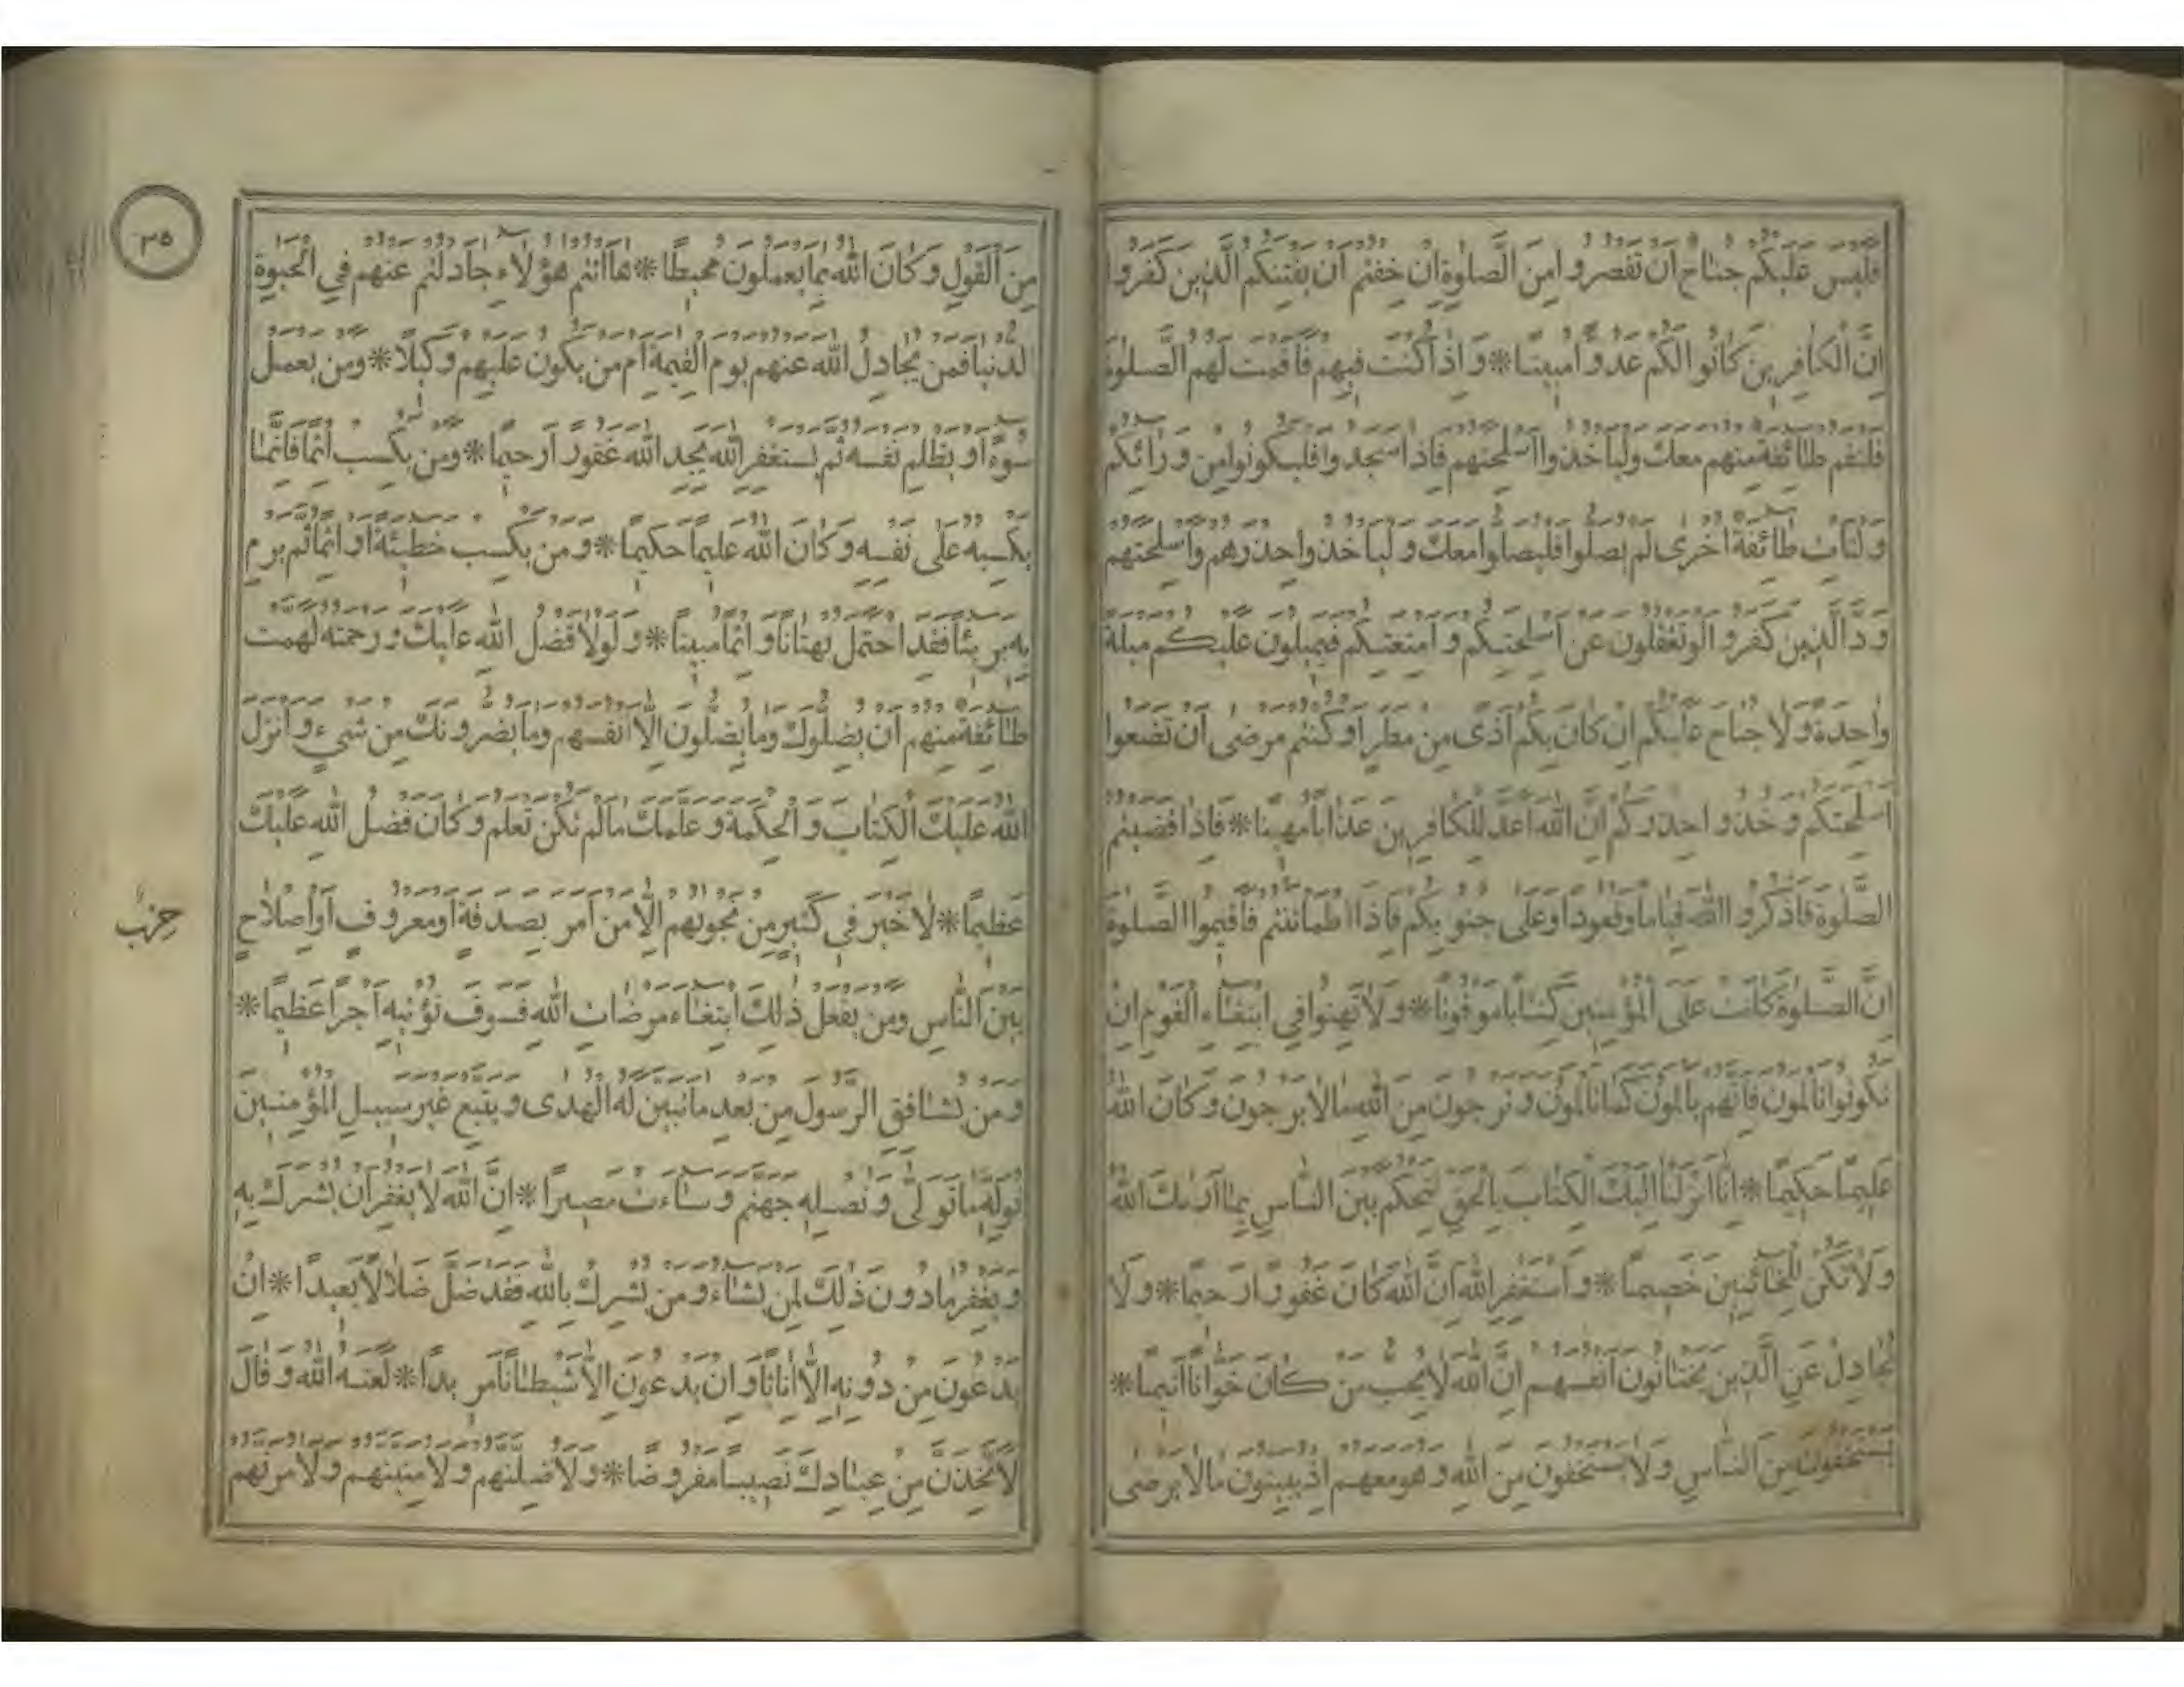 فَلَيْسَ عَلَيْكُمْ جُنَاحٌ اَنْ تَقْصُرُوا مِنَ الصَّلٰوةِ اِنْ خِفْتُمْ اَنْ يَفْتِنَكُمُ الَّذِينَ كَفَرُوا
اِنَّ الْكَافِرِينَ كَانُوا لَكُمْ عَدُوًّا مُبِينًا * وَاِذَا كُنْتَ فِيهِمْ فَاَقَمْتَ لَهُمُ الصَّلٰوةَ
فَلْتَقُمْ طَائِفَةٌ مِنْهُمْ مَعَكَ وَلْيَأْخُذُوا اَسْلِحَتَهُمْ فَاِذَا سَجَدُوا فَلْيَكُونُوا مِنْ وَرَائِكُمْ
وَلْتَأْتِ طَائِفَةٌ اُخْرٰى لَمْ يُصَلُّوا فَلْيُصَلُّوا مَعَكَ وَلْيَأْخُذُوا حِذْرَهُمْ وَاَسْلِحَتَهُمْ
وَدَّ الَّذِينَ كَفَرُوا لَوْ تَغْفُلُونَ عَنْ اَسْلِحَتِكُمْ وَاَمْتِعَتِكُمْ فَيَمِيلُونَ عَلَيْكُمْ مَيْلَةً
وَاحِدَةً وَلَا جُنَاحَ عَلَيْكُمْ اِنْ كَانَ بِكُمْ اَذًى مِنْ مَطَرٍ اَوْ كُنْتُمْ مَرْضٰى اَنْ تَضَعُوا
اَسْلِحَتَكُمْ وَخُذُوا حِذْرَكُمْ اِنَّ اللّٰهَ اَعَدَّ لِلْكَافِرِينَ عَذَابًا مُهِينًا * فَاِذَا قَضَيْتُمُ
الصَّلٰوةَ فَاذْكُرُوا اللّٰهَ قِيَامًا وَقُعُودًا وَعَلٰى جُنُوبِكُمْ فَاِذَا اطْمَأْنَنْتُمْ فَاَقِيمُوا الصَّلٰوةَ
اِنَّ الصَّلٰوةَ كَانَتْ عَلَى الْمُؤْمِنِينَ كِتَابًا مَوْقُوتًا * وَلَا تَهِنُوا فِي ابْتِغَاءِ الْقَوْمِ اِنْ
تَكُونُوا تَأْلَمُونَ فَاِنَّهُمْ يَأْلَمُونَ كَمَا تَأْلَمُونَ وَتَرْجُونَ مِنَ اللّٰهِ مَا لَا يَرْجُونَ وَكَانَ اللّٰهُ
عَلِيمًا حَكِيمًا * اِنَّا اَنْزَلْنَا اِلَيْكَ الْكِتَابَ بِالْحَقِّ لِتَحْكُمَ بَيْنَ النَّاسِ بِمَا اَرٰيكَ اللّٰهُ
وَلَا تَكُنْ لِلْخَائِنِينَ خَصِيمًا * وَاسْتَغْفِرِ اللّٰهَ اِنَّ اللّٰهَ كَانَ غَفُورًا رَحِيمًا * وَلَا
تُجَادِلْ عَنِ الَّذِينَ يَخْتَانُونَ اَنْفُسَهُمْ اِنَّ اللّٰهَ لَا يُحِبُّ مَنْ كَانَ خَوَّانًا اَثِيمًا *
يَسْتَخْفُونَ مِنَ النَّاسِ وَلَا يَسْتَخْفُونَ مِنَ اللّٰهِ وَهُوَ مَعَهُمْ اِذْ يُبَيِّتُونَ مَا لَا يَرْضٰى
٣٥
مِنَ الْقَوْلِ وَكَانَ اللّٰهُ بِمَا يَعْمَلُونَ مُحِيطًا * هَا اَنْتُمْ هٰؤُلَاءِ جَادَلْتُمْ عَنْهُمْ فِي الْحَيٰوةِ
الدُّنْيَا فَمَنْ يُجَادِلُ اللّٰهَ عَنْهُمْ يَوْمَ الْقِيٰمَةِ اَمْ مَنْ يَكُونُ عَلَيْهِمْ وَكِيلًا * وَمَنْ يَعْمَلْ
سُوءًا اَوْ يَظْلِمْ نَفْسَهُ ثُمَّ يَسْتَغْفِرِ اللّٰهَ يَجِدِ اللّٰهَ غَفُورًا رَحِيمًا * وَمَنْ يَكْسِبْ اِثْمًا فَاِنَّمَا
يَكْسِبُهُ عَلٰى نَفْسِهِ وَكَانَ اللّٰهُ عَلِيمًا حَكِيمًا * وَمَنْ يَكْسِبْ خَطِيئَةً اَوْ اِثْمًا ثُمَّ يَرْمِ
بِهِ بَرِيئًا فَقَدِ احْتَمَلَ بُهْتَانًا وَاِثْمًا مُبِينًا * وَلَوْلَا فَضْلُ اللّٰهِ عَلَيْكَ وَرَحْمَتُهُ لَهَمَّتْ
طَائِفَةٌ مِنْهُمْ اَنْ يُضِلُّوكَ وَمَا يُضِلُّونَ اِلَّا اَنْفُسَهُمْ وَمَا يَضُرُّونَكَ مِنْ شَيْءٍ وَاَنْزَلَ
اللّٰهُ عَلَيْكَ الْكِتَابَ وَالْحِكْمَةَ وَعَلَّمَكَ مَا لَمْ تَكُنْ تَعْلَمُ وَكَانَ فَضْلُ اللّٰهِ عَلَيْكَ
عَظِيمًا * لَا خَيْرَ فِي كَثِيرٍ مِنْ نَجْوٰيهُمْ اِلَّا مَنْ اَمَرَ بِصَدَقَةٍ اَوْ مَعْرُوفٍ اَوْ اِصْلَاحٍ
حزب
بَيْنَ النَّاسِ وَمَنْ يَفْعَلْ ذٰلِكَ ابْتِغَاءَ مَرْضَاتِ اللّٰهِ فَسَوْفَ نُؤْتِيهِ اَجْرًا عَظِيمًا *
وَمَنْ يُشَاقِقِ الرَّسُولَ مِنْ بَعْدِ مَا تَبَيَّنَ لَهُ الْهُدٰى وَيَتَّبِعْ غَيْرَ سَبِيلِ الْمُؤْمِنِينَ
نُوَلِّهِ مَا تَوَلّٰى وَنُصْلِهِ جَهَنَّمَ وَسَاءَتْ مَصِيرًا * اِنَّ اللّٰهَ لَا يَغْفِرُ اَنْ يُشْرَكَ بِهِ
وَيَغْفِرُ مَا دُونَ ذٰلِكَ لِمَنْ يَشَاءُ وَمَنْ يُشْرِكْ بِاللّٰهِ فَقَدْ ضَلَّ ضَلَالًا بَعِيدًا * اِنْ
يَدْعُونَ مِنْ دُونِهِ اِلَّا اِنَاثًا وَاِنْ يَدْعُونَ اِلَّا شَيْطَانًا مَرِيدًا * لَعَنَهُ اللّٰهُ وَقَالَ
لَاَتَّخِذَنَّ مِنْ عِبَادِكَ نَصِيبًا مَفْرُوضًا * وَلَاُضِلَّنَّهُمْ وَلَاُمَنِّيَنَّهُمْ وَلَاٰمُرَنَّهُمْ